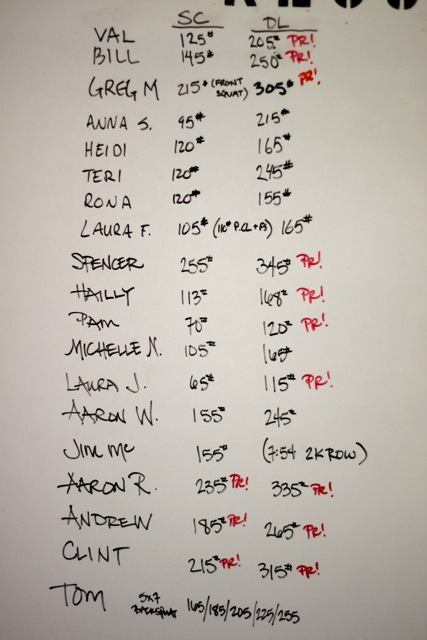 SC DL
VAL 125# 205# PR!
BILL 145# 250# PR!
GREG M 215# (FRONT SQUAT) 305# PR!
ANNA S. 95# 215#
HEIDI 120# 165#
TERI 120# 245#
RONA 120# 155#
LAURA F. 105# (110# P.CL+FS) 165#
SPENCER 255# 345# PR!
HAILLY 113# 168# PR!
PAM 70# 120# PR!
MICHELLE N. 105# 165#
LAURA J. 65# 115# PR!
AARON W. 155# 245#
JIM MC 155# (7:54 2K ROW)
AARON R. 235# PR! 335# PR!
ANDREW 185# PR! 265# PR!
CLINT 215# PR! 315# PR!
TOM 5X7 BACKSQUAT 165/185/205/225/255